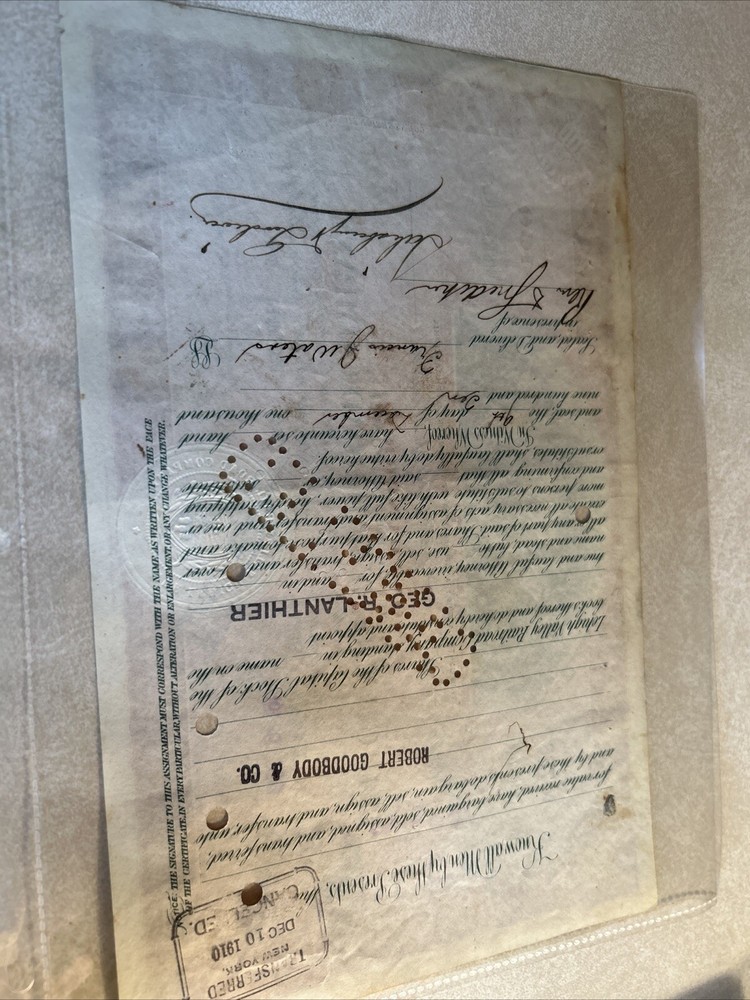 TRANSFERRED
NEW YORK.
DEC 10 1910
CANCELLED.
Know all Men by these Presents, that
for value received, have bargained, sold, assigned, and transferred,
and by these presents do bargain, sell, assign, and transfer, unto
ROBERT GOODBODY & CO.
Shares of the Capital Stock of the
Lehigh Valley Railroad Company, standing in name on the
books thereof, and do hereby constitute and appoint
GEO. R. LANTHIER
true and lawful Attorney, irrevocable, for and in
name and stead, but to use, sell, assign, transfer and set over
all or any part of said Shares, and for that purpose to make and
execute all necessary acts of assignment and transfer, and one or
more persons to substitute with like full power, hereby ratifying
and confirming all that said Attorney, or substitute
or substitutes, shall lawfully do by virtue hereof.
In Witness Whereof, have hereunto set hand
and seal, the 9th day of December one thousand
nine hundred and Ten
Sealed and Delivered
in presence of
Francis J Waters LS
NOTICE. THE SIGNATURE TO THIS ASSIGNMENT MUST CORRESPOND WITH THE NAME AS WRITTEN UPON THE FACE
OF THE CERTIFICATE, IN EVERY PARTICULAR, WITHOUT ALTERATION OR ENLARGEMENT, OR ANY CHANGE WHATEVER.